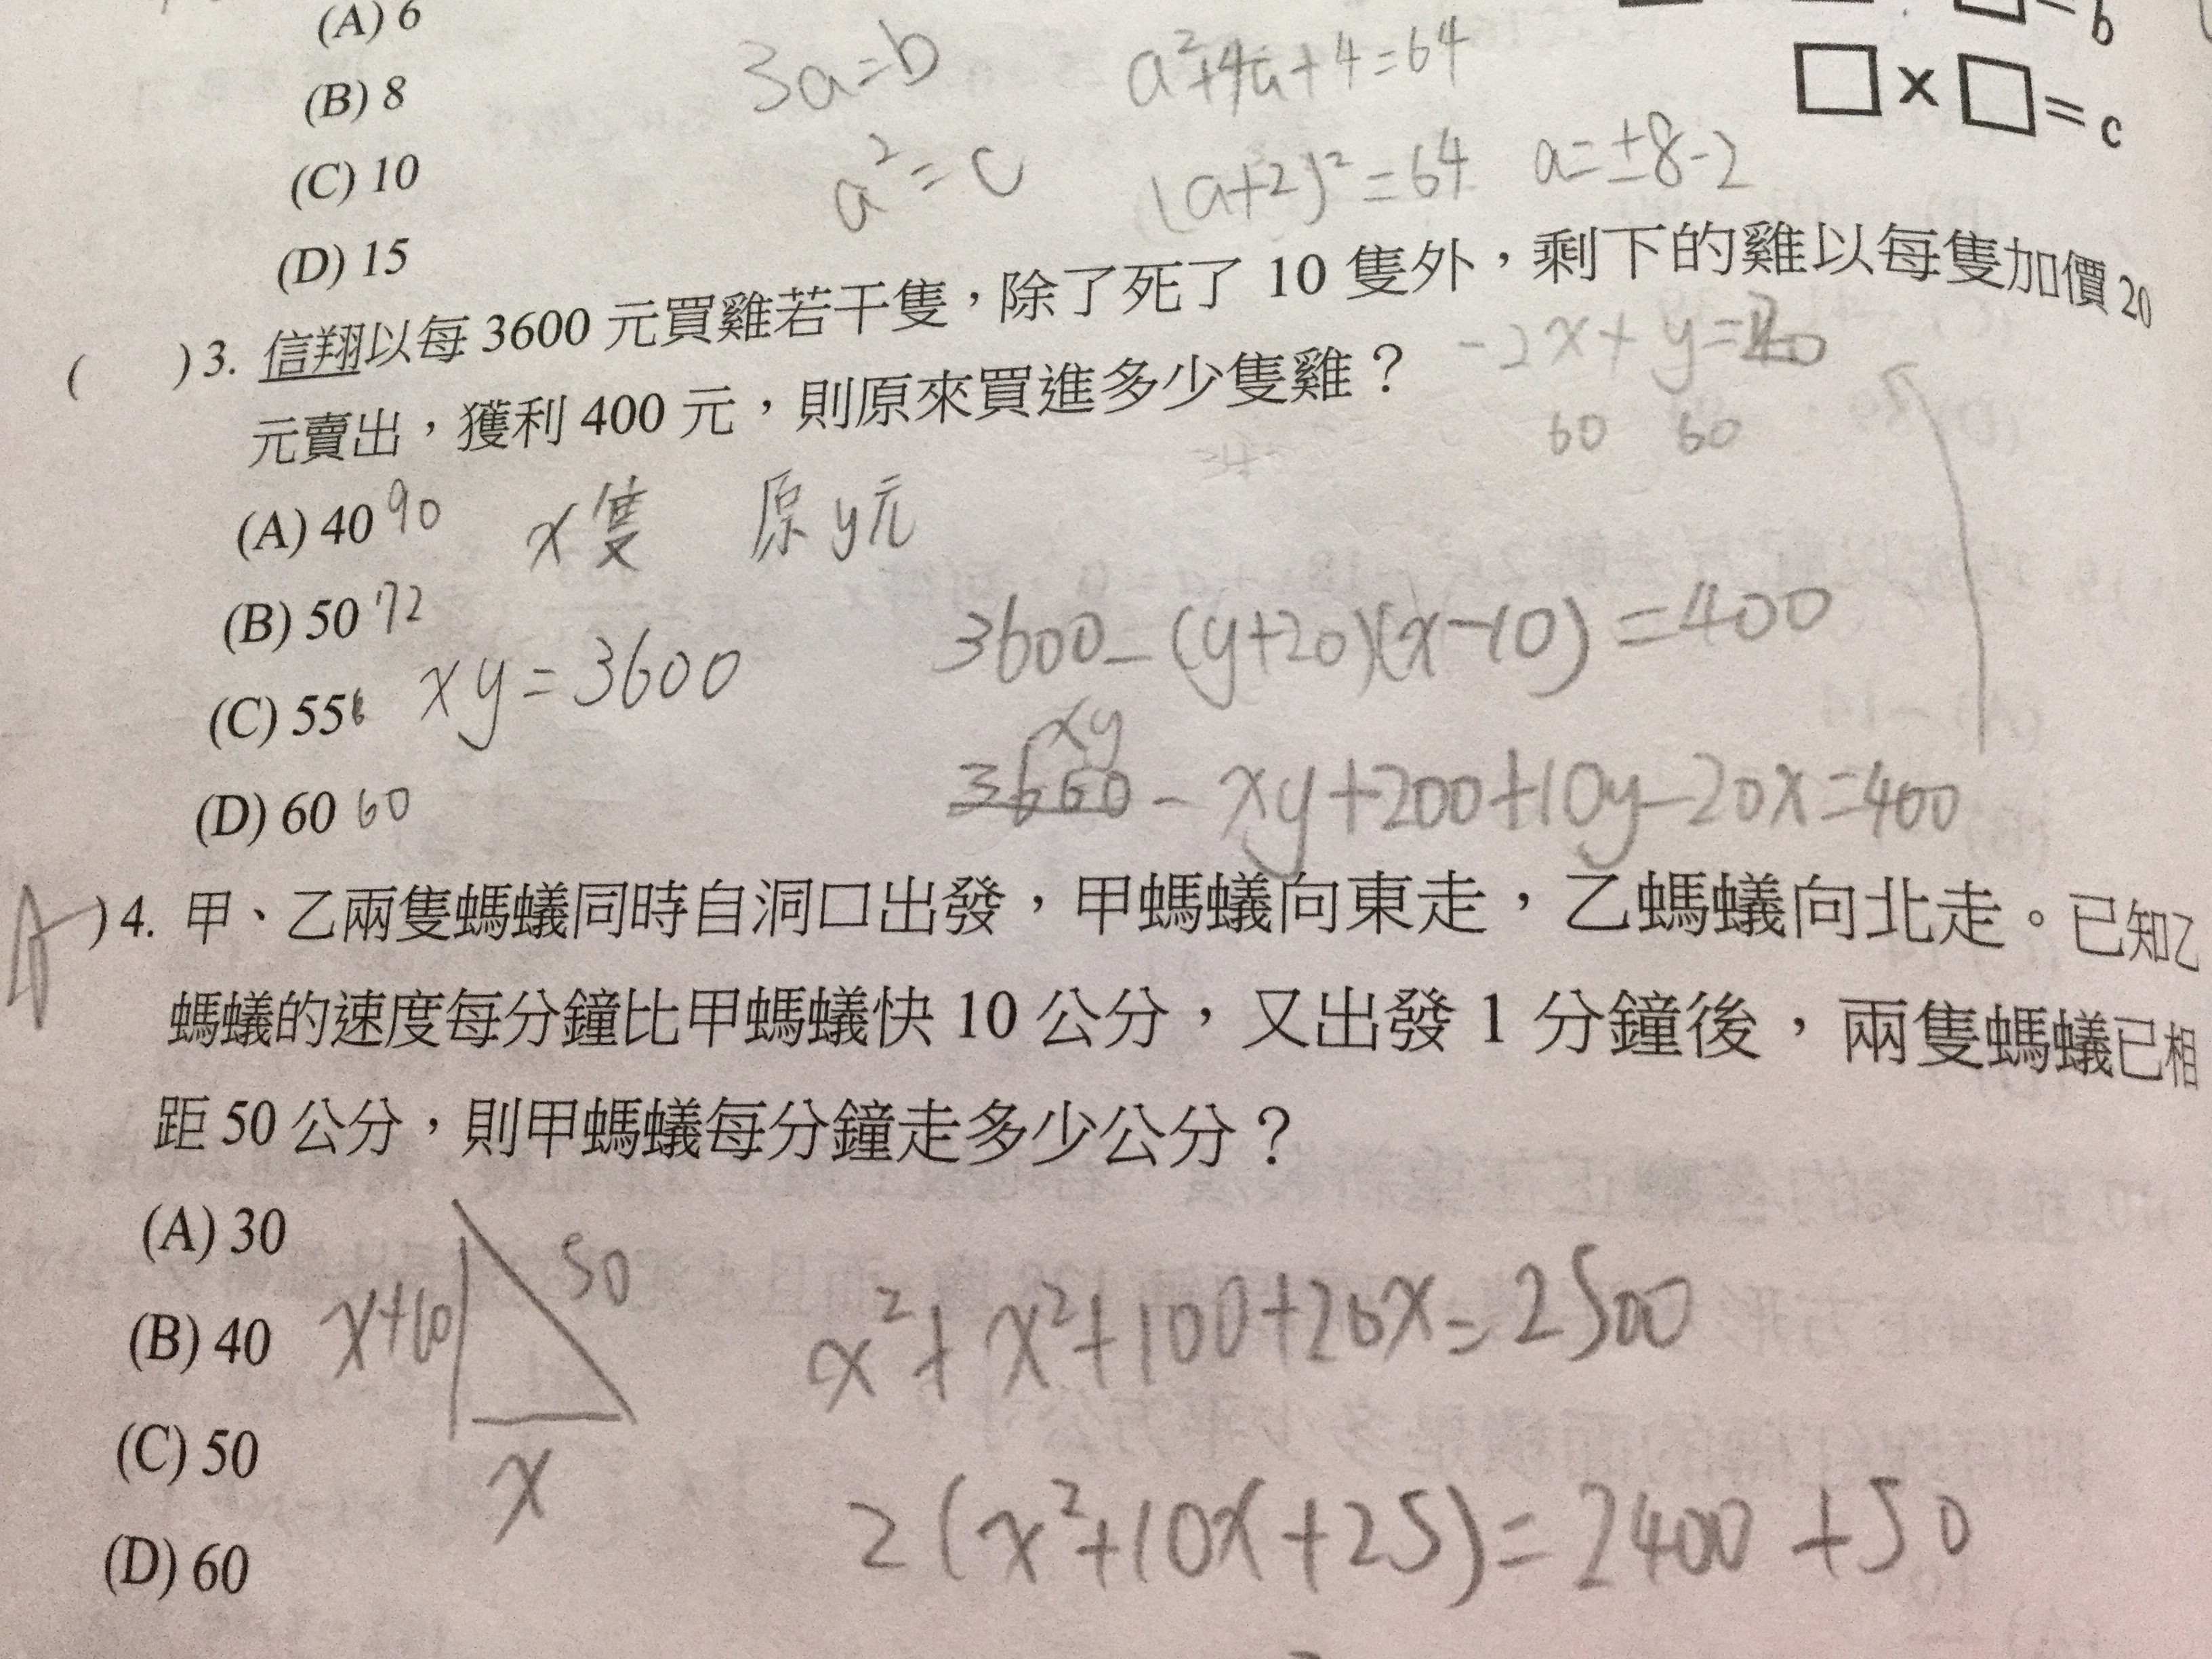 (A) 6
(B) 8
(C) 10
(D) 15
3a=b
a²=c
a²+4a+4=64
(a+2)²=64 a=±8-2
=b
□×□=c
( )3. 信翔以每 3600 元買雞若干隻，除了死了 10 隻外，剩下的雞以每隻加價 20
元賣出，獲利 400 元，則原來買進多少隻雞？
-2x+y=20
60 60
(A) 40 90
x隻 原y元
(B) 50 72
xy=3600
3600-(y+20)(x-10)=400
(C) 55
(D) 60 60
xy
3600-xy+200+10y-20x=400
A )4. 甲、乙兩隻螞蟻同時自洞口出發，甲螞蟻向東走，乙螞蟻向北走。已知乙
螞蟻的速度每分鐘比甲螞蟻快 10 公分，又出發 1 分鐘後，兩隻螞蟻已相
距 50 公分，則甲螞蟻每分鐘走多少公分？
(A) 30
(B) 40
(C) 50
(D) 60
x+10 50
x
x²+x²+100+20x=2500
2(x²+10x+25)=2400+50